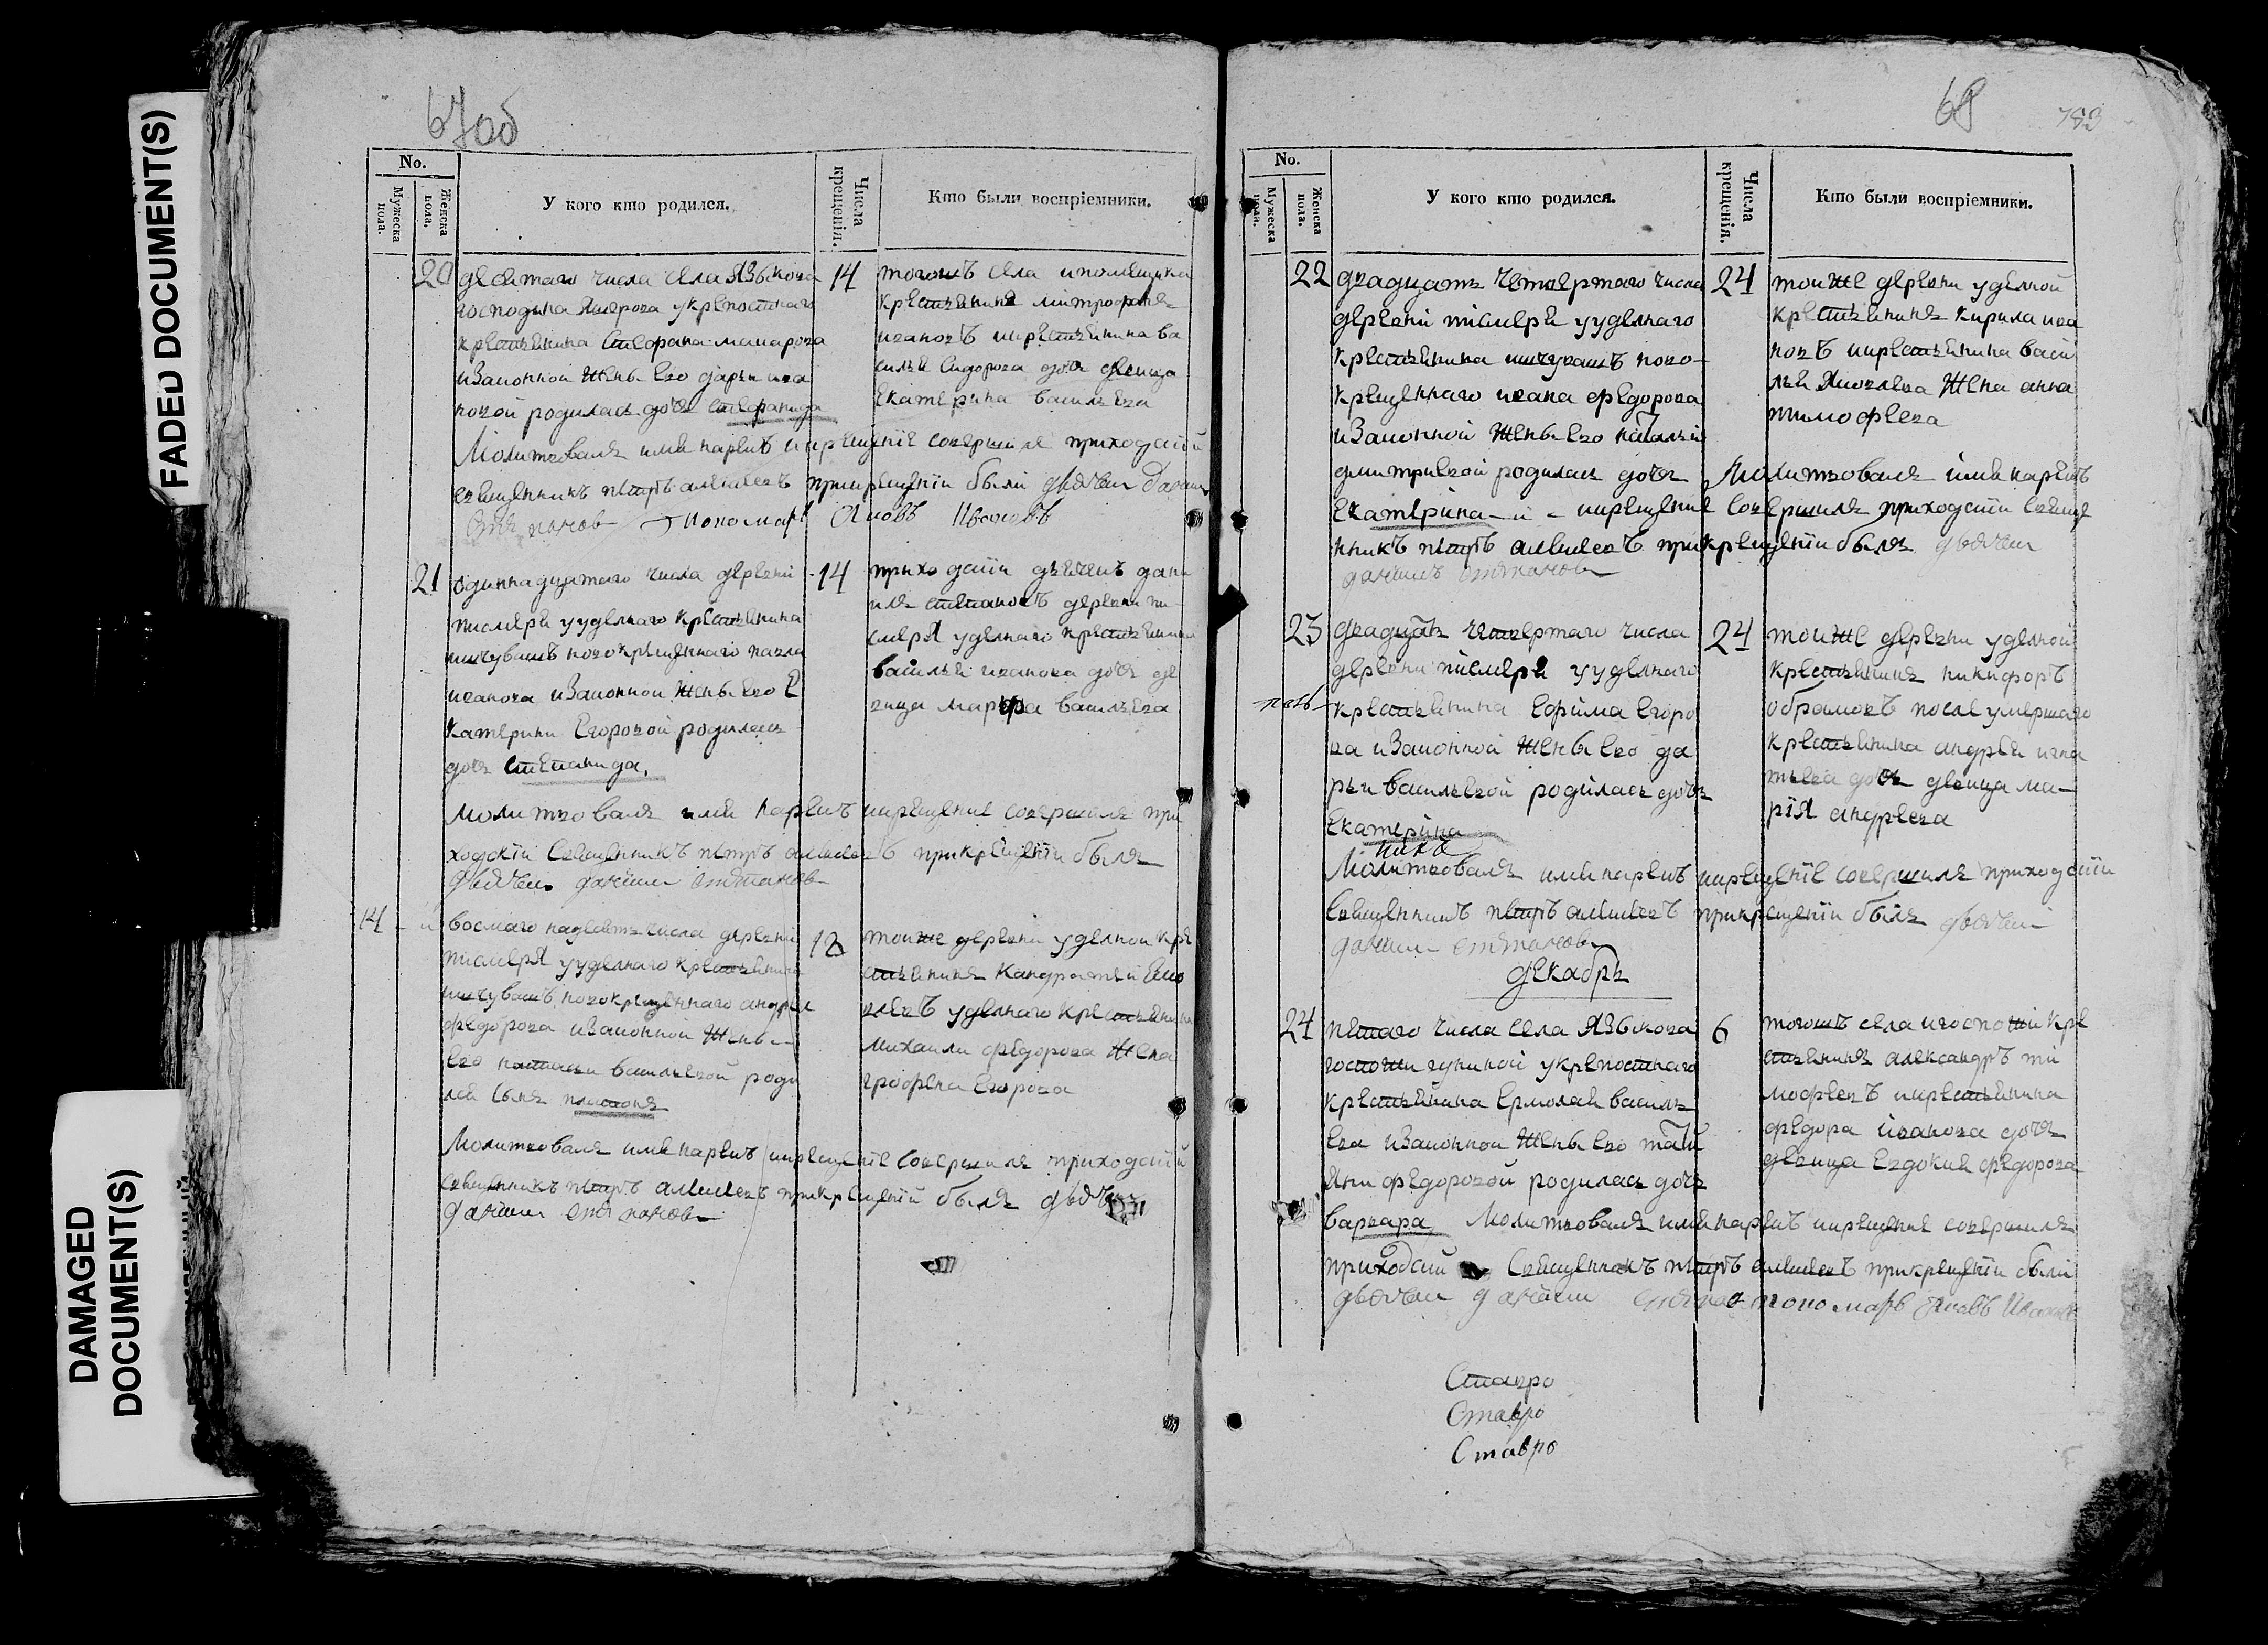 FADED DOCUMENT(S)
DAMAGED
DOCUMENT(S)
67об
No.
Мужеска пола.
Женска пола.
У кого кто родился.
Числа крещенія.
Кто были воспріемники.
20
десятаго числа села Языкова
господина укрепостнаго
крестьянина Стефана макарова
изаконной жены его дарьи ива
новой родилась дочь стефанида
14
тогожъ села ипомещика
крестьянинъ митрофанъ
ивановъ икрестьянина ва
силья сидорова дочь девица
екатерина васильева
Молитвовалъ имя нарекъ икрещение совершилъ приходскій
священникъ петръ алексеевъ прикрещеніи были дьячекъ Данил
Степановъ пономарь Яковъ Ивановъ
21
одиннадцатаго числа деревни
писмери ууделнаго крестьянина
изчувашъ новокрещеннаго павла
иванова изаконной жены его Е
катерины Егоровой родилась
дочь степанида.
14
приходскій дьячекъ дани
илъ степановъ деревни пи
смеря уделнаго крестьянина
василья иванова дочь де
вица марфа васильева
молитвовалъ имя нарекъ икрещение совершилъ при
ходскій священникъ петръ алексеевъ прикрещеніи былъ
дьячекъ данилъ степановъ
14
восмаго надесять числа деревни
писмеря ууделнаго крестьянина
изчувашъ новокрещеннаго андрея
федорова изаконной жены
его натальи васильевой роди
лся сынъ платонъ
18
тойже деревни уделной кре
стьянинъ Кандратей Яко
влевъ уделнаго крестьянина
михаила федорова жена
грофена егорова
Молитвовалъ имя нарекъ икрещеніе совершилъ приходскій
священникъ петръ алексеевъ прикрещеній былъ дьячекъ
данилъ степановъ
68
793
No.
Мужеска пола.
Женска пола.
У кого кто родился.
Числа крещенія.
Кто были воспріемники.
22
двадцать четвертаго числа
деревни писмери ууделнаго
крестьянина изчувашъ ново-
крещеннаго ивана федорова
изаконной жены его натальи
дмитриевой родилась дочь
Екатерина
24
тойже деревни уделной
крестьянинъ кирила ива
новъ икрестьянина васи
лья Яковлева жена анна
тимофеева
Молитвовалъ имя нарекъ
икрещение совершилъ приходскій свяще
нникъ петръ алексеевъ прикрещеніи былъ дьячекъ
данилъ степановъ
23
двадцать четвертаго числа
деревни писмери ууделнаго
крестьянина Ефима Егоро
ва изаконной жены его да
рьи васильевой родилась дочь
Екатерина
24
тойже деревни уделной
крестьянинъ никифоръ
обрамовъ после умершаго
крестьянина андрея игна
тьева дочь девица ма-
рія андреева
Молитвовалъ имя нарекъ икрещеніе совершилъ приходскій
священникъ петръ алексеевъ прикрещеніи былъ дьячекъ
данилъ степановъ
декабрь
24
пятаго числа села Языкова
госпожи укрепостнаго
крестьянина Ермолая василь
ева изаконной жены его тать
яны федоровой родилась дочь
варвара
6
тогожъ села игоспожи кре
стьянинъ александръ ти
мофеевъ икрестьянина
федора иванова дочь
девица евдокия федорова
Молитвовалъ имя нарекъ икрещение совершилъ
приходскій священникъ петръ алексеевъ прикрещеніи были
дьячекъ данилъ степанов пономарь Яковъ Ивановъ
Ставро
Ставро
Ставро